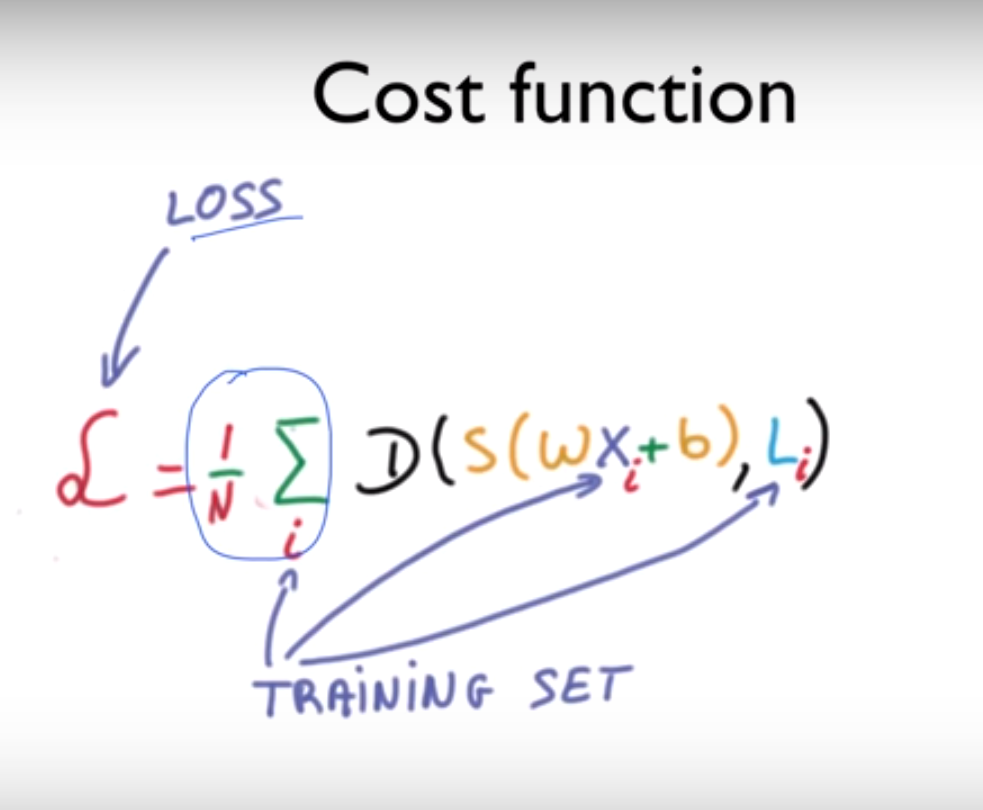 Cost function
LOSS
ℒ = 1/N Σ_i D(S(WX_i + b), L_i)
TRAINING SET